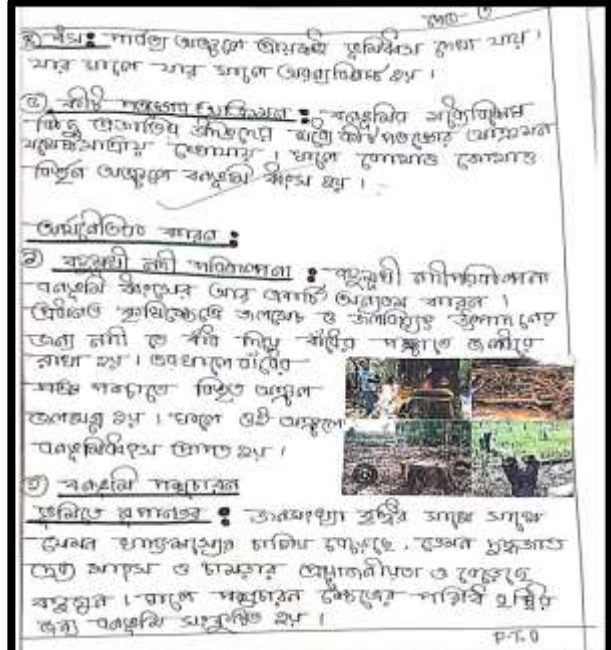 পাতা - ৩
৪) ধস: পার্বত্য অঞ্চলে প্রায়শই ভূমিধ্বস দেখা যায়।
যার ফলে অরণ্যবিনাশ হয়।
৫) কীট পতঙ্গের আক্রমন: বনভূমির
কিছু প্রজাতির উদ্ভিদের মধ্যে কীটপতঙ্গের আক্রমন
। ফলে কোথাও কোথাও
বিস্তীর্ন অঞ্চলে বনভূমি ধ্বংস হয়।
অর্থনৈতিক কারন:
১) বহুমুখী নদী পরিকল্পনা: বহুমুখী নদীপরিকল্পনা
বনভূমি ধ্বংসের আর একটি অন্যতম কারন।
কৃষিক্ষেত্রে জলসেচ ও জলবিদ্যুৎ উৎপাদনের
জন্য নদী তে বাঁধ দিয়ে বাঁধের পশ্চাতে জলধরে
রাখা হয়। এরফলে বাঁধের
পশ্চাতে বিস্তৃত অঞ্চল
জলমগ্ন হয়। ফলে ওই অঞ্চলে
বনভূমি ধ্বংস প্রাপ্ত হয়।
২) বনভূমি পশুচারন
ভূমিতে রূপান্তর: জনসংখ্যা বৃদ্ধির সাথে সাথে
যেমন খাদ্যশস্যের চাহিদা বেড়েছে, তেমন দুগ্ধজাত
দ্রব্য মাংস ও চামড়ার প্রয়োজনীয়তা ও বেড়েছে
বহুগুন। ফলে পশুচারন ক্ষেত্রের পরিধি বৃদ্ধির
জন্য বনভূমি সংকুচিত হয়।
P.T.O